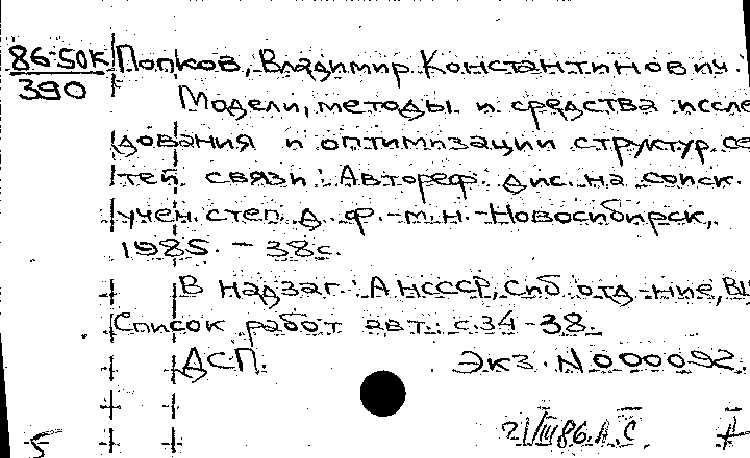 86-50К Попков, Владимир Константинович.
390
Модели, методы и средства иссле
дования и оптимизации структур се
тей связи: Автореф. дис. на соиск.
учен. степ. д. ф.-м. н. - Новосибирск,
1985. - 38 с.
В надзаг.: АН СССР, Сиб. отд-ние, ВЦ
Список работ авт.: с. 34-38
ДСП. Экз. N 000092.
21/III 86. А. С.
5